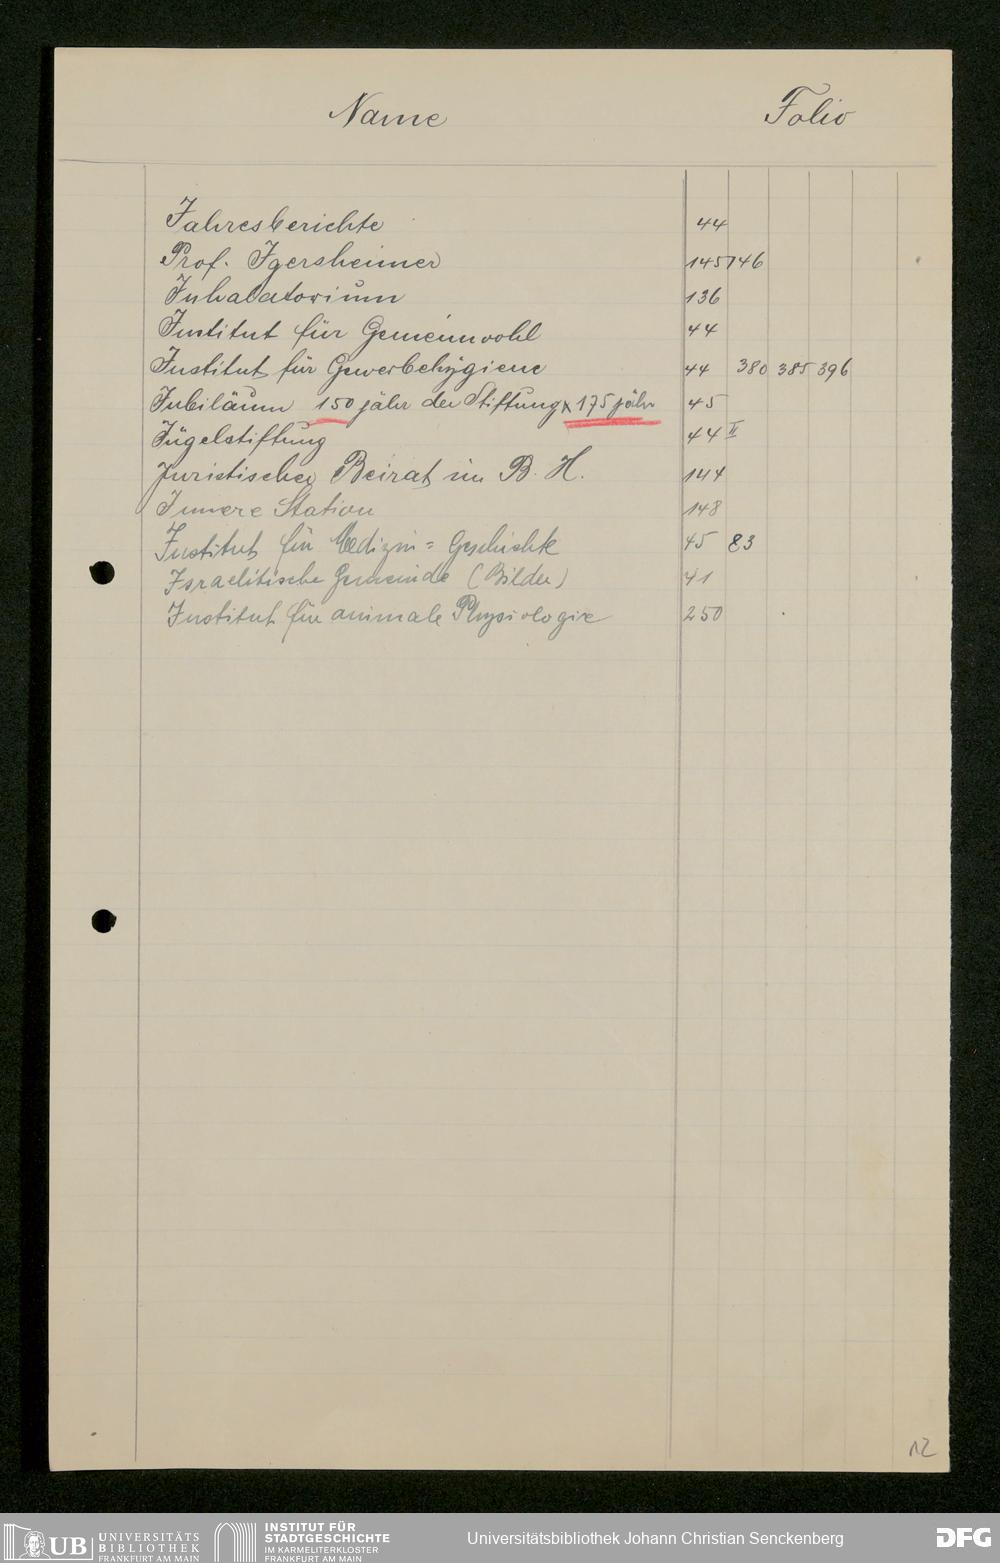 Name Folio
Jahresberichte 44
Prof. Igersheimer 145 146
Inhalatorium 136
Institut für Gemeinwohl 44
Institut für Gewerbehygiene 44 380 385 396
Jubiläum 150 jähr der Stiftung x 175 jähr 45
Jügelstiftung 44 II
Juristischer Beirat im B. H. 144
Innere Station 148
Institut für Medizin = Geschichte 45 83
Israelitische Gemeinde (Bilder) 41
Institut für animale Physiologie 250
12
UB UNIVERSITÄTS BIBLIOTHEK FRANKFURT AM MAIN
INSTITUT FÜR STADTGESCHICHTE IM KARMELITERKLOSTER FRANKFURT AM MAIN
Universitätsbibliothek Johann Christian Senckenberg
DFG